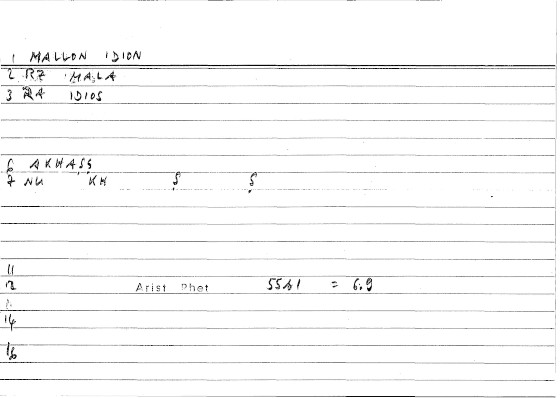 1 MALLON IDION
2 RZ MALA
3 RA IDIOS
6 AKHAṢṢ
7 NU KH Ṣ Ṣ
11
12 Arist Rhet = 6.9
14
16